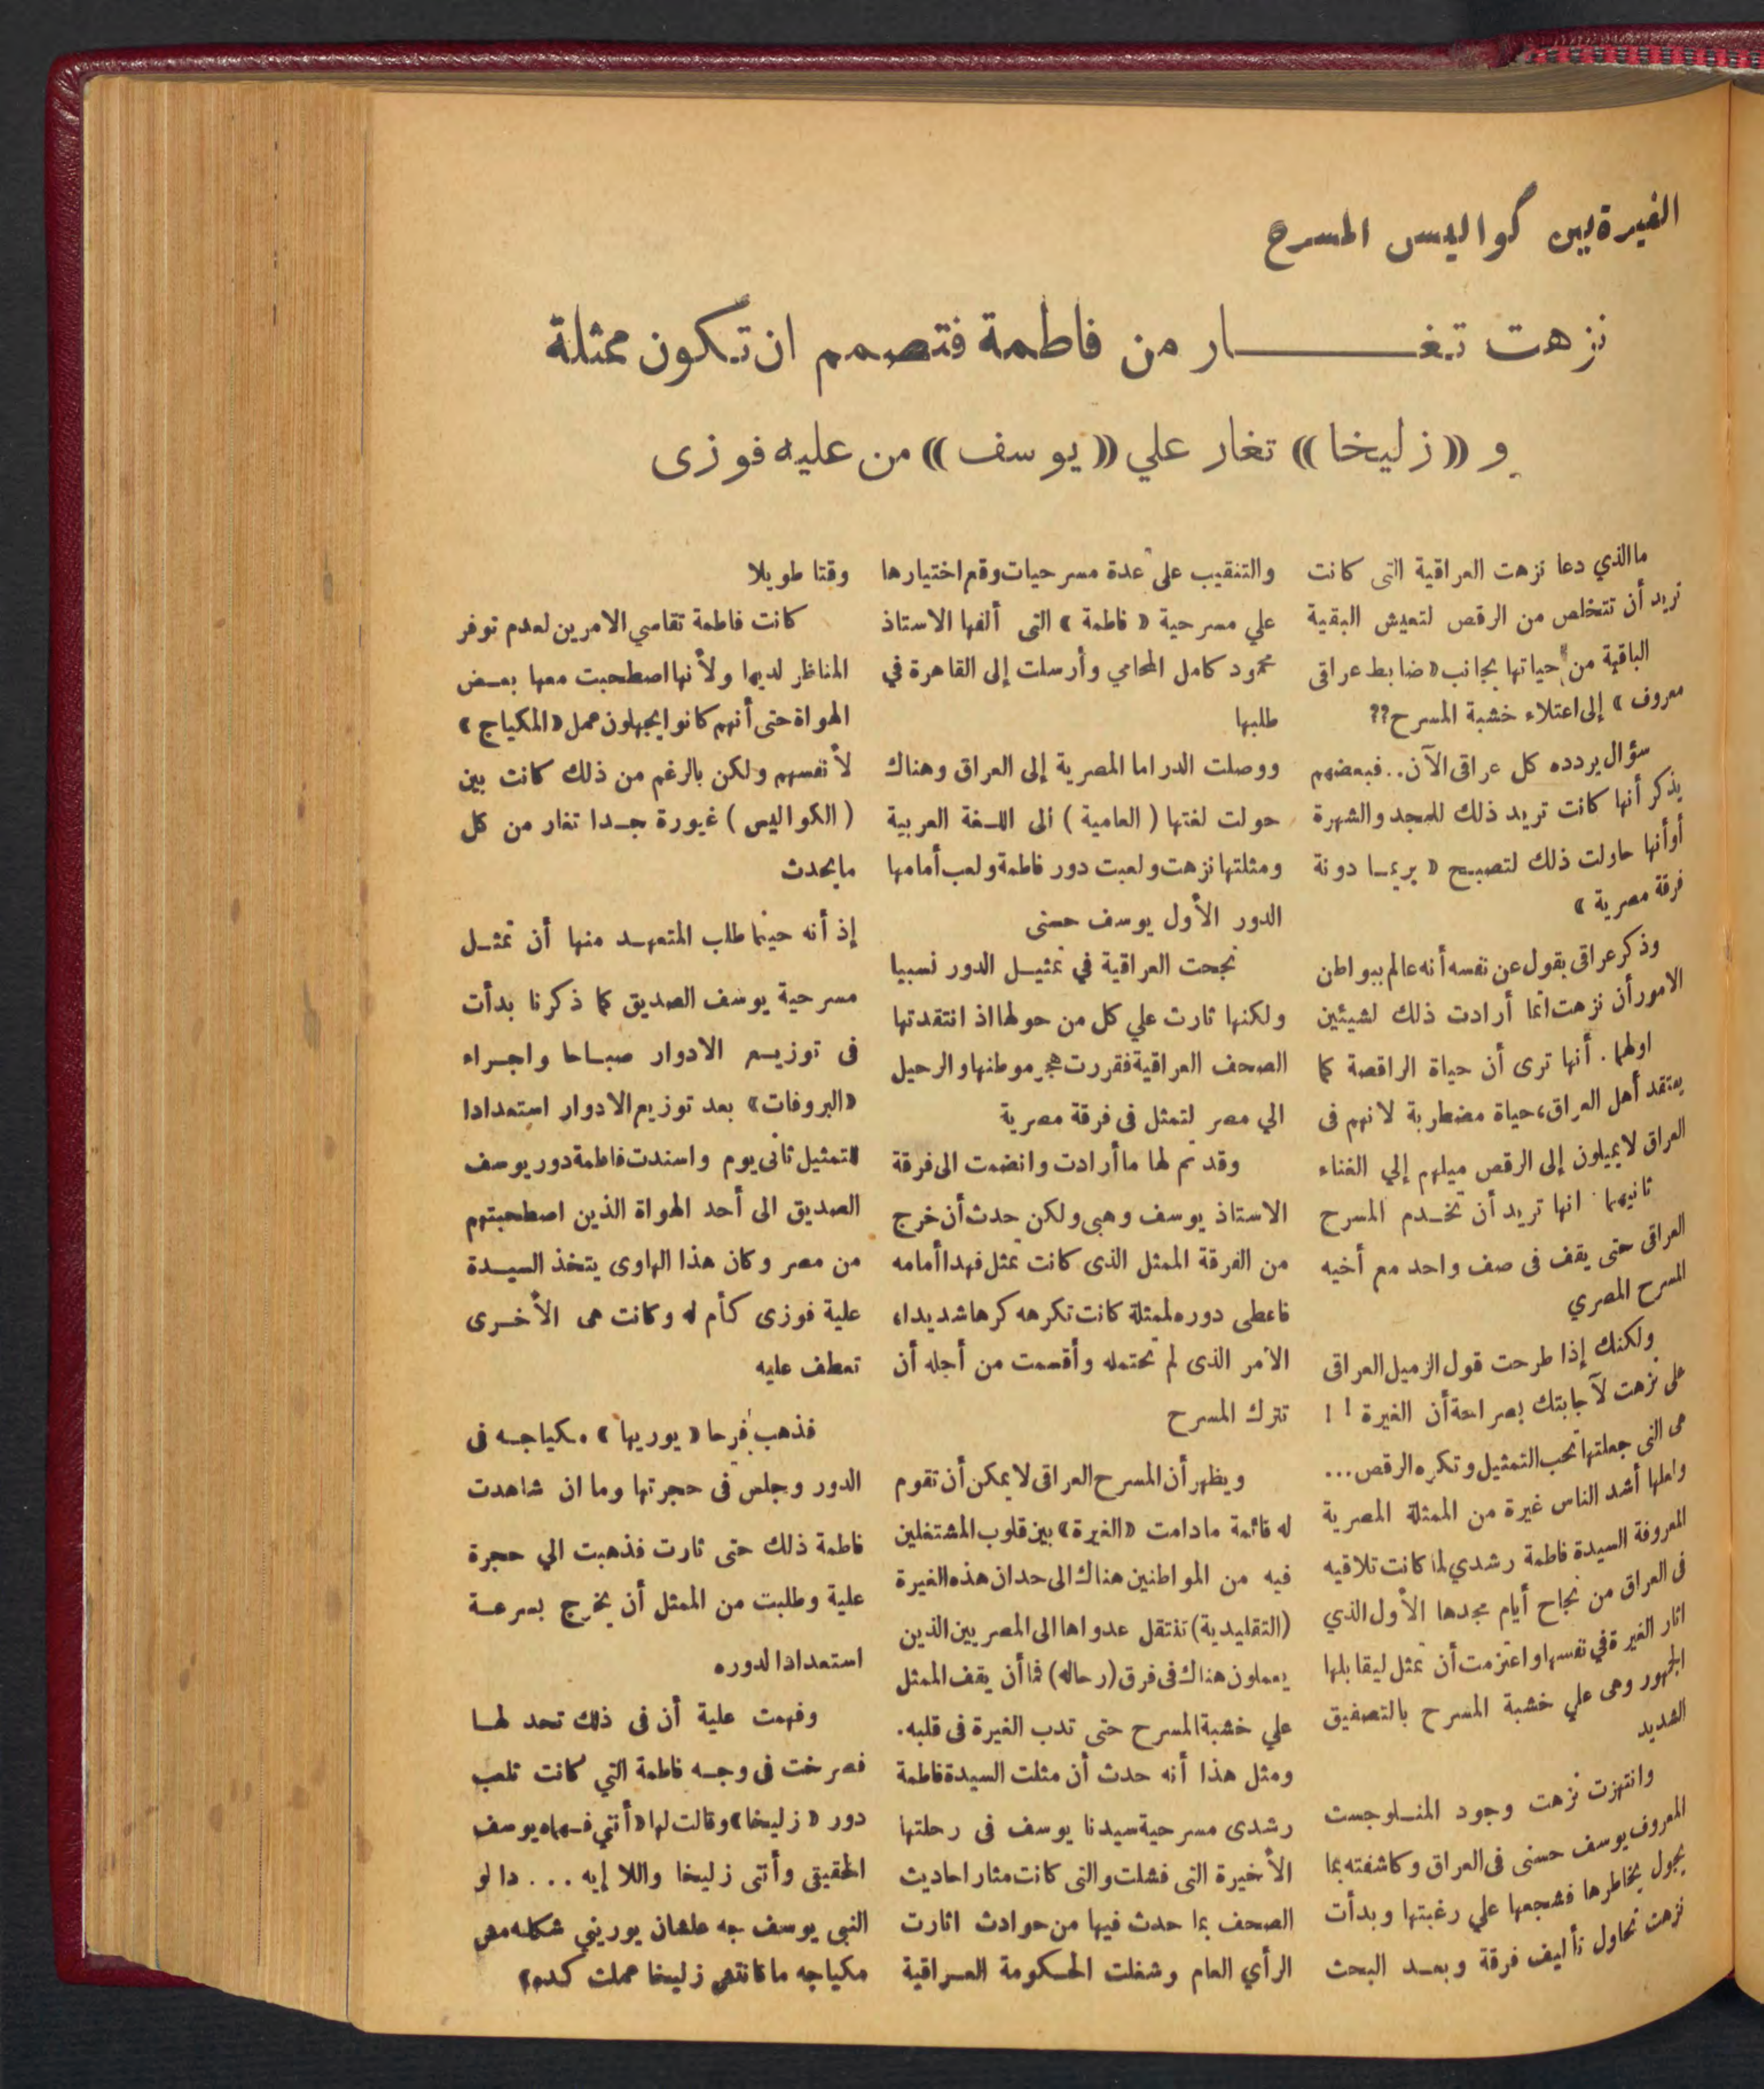 الغيرة بين كواليس المسرح
نزهت تغـــــــار من فاطمة فتصمم ان تكون ممثلة
و «زليخا» تغار علي «يوسف» من عليه فوزى
ما الذي دعا نزهت العراقية التى كانت
تريد أن تتخلص من الرقص لتعيش البقية
الباقية من حياتها بجانب « ضابط عراقى
معروف » إلى اعتلاء خشبة المسرح ??
سؤال يردده كل عراقى الآن .. فبعضهم
يذكر أنها كانت تريد ذلك للمجد والشهرة
أو أنها حاولت ذلك لتصبح « بريما دونة
فرقة مصرية »
وذكر عراقى يقول عن نفسه أنه عالم ببواطن
الامور أن نزهت انما أرادت ذلك لشيئين
اولهما . أنها ترى أن حياة الراقصة كما
يعتقد أهل العراق، حياة مضطربة لانهم فى
العراق لا يميلون إلى الرقص ميلهم إلي الغناء
ثانيهما . انها تريد أن تخدم المسرح
العراقى حتى يقف فى صف واحد مع أخيه
المسرح المصري
ولكنك إذا طرحت قول الزميل العراقى
على نزهت لآجابتك بصراحة أن الغيرة ! !
هى التى جعلتها تحب التمثيل وتكره الرقص ...
ولعلها أشد الناس غيرة من الممثلة المصرية
المعروفة السيدة فاطمة رشدي لما كانت تلاقيه
فى العراق من نجاح أيام مجدها الأول الذي
اثار الغيرة في نفسها واعتزمت أن تمثل ليقابلها
الجمهور وهى علي خشبة المسرح بالتصفيق
الشديد
وانتهزت نزهت وجود المنلوجست
المعروف يوسف حسنى فى العراق وكاشفته بما
يجول بخاطرها فشجعها علي رغبتها وبدأت
نزهت تحاول تأليف فرقة وبعد البحث
والتنقيب على عدة مسرحيات وقع اختيارها
علي مسرحية « فاطمة » التى ألفها الاستاذ
محمود كامل المحامي وأرسلت إلى القاهرة في
طلبها
ووصلت الدراما المصرية إلى العراق وهناك
حولت لغتها ( العامية ) الى اللغة العربية
ومثلتها نزهت ولعبت دور فاطمة ولعب أمامها
الدور الأول يوسف حسنى
نجحت العراقية في تمثيل الدور نسبيا
ولكنها ثارت علي كل من حولها اذ انتقدتها
الصحف العراقية فقررت هجر موطنها والرحيل
الي مصر لتمثل فى فرقة مصرية
وقد تم لها ما أرادت وانضمت الى فرقة
الاستاذ يوسف وهبى ولكن حدث أن خرج
من الفرقة الممثل الذى كانت تمثل فهدا أمامه
فاعطى دوره لممثلة كانت تكرهه كرها شديدا،
الامر الذى لم تحتمله وأقسمت من أجله أن
تترك المسرح
ويظهر أن المسرح العراقى لا يمكن أن تقوم
له قائمة ما دامت «الغيرة» بين قلوب المشتغلين
فيه من المواطنين هناك الى حد ان هذه الغيرة
(التقليدية) تنتقل عدواها الى المصريين الذين
يعملون هناك فى فرق (رحاله) فما أن يقف الممثل
علي خشبة المسرح حتى تدب الغيرة فى قلبه.
ومثل هذا أنه حدث أن مثلت السيدة فاطمة
رشدى مسرحية سيدنا يوسف فى رحلتها
الأخيرة التى فشلت والتى كانت مثار احاديث
الصحف بما حدث فيها من حوادث اثارت
الرأي العام وشغلت الحكومة العراقية
وقتا طويلا
كانت فاطمة تقاسي الامرين لعدم توفر
المناظر لديها ولأنها اصطحبت معها بعض
الهواة حتى أنهم كانوا يجهلون عمل «المكياج»
لأنفسهم ولكن بالرغم من ذلك كانت بين
( الكواليس ) غيورة جدا تغار من كل
ما يحدث
إذ أنه حينما طلب المتعهد منها أن تمثل
مسرحية يوسف الصديق كما ذكرنا بدأت
فى توزيع الادوار صباحا واجراء
«البروفات» بعد توزيع الادوار استعدادا
للتمثيل ثانى يوم واسندت فاطمة دور يوسف
الصديق الى أحد الهواة الذين اصطحبتهم
من مصر وكان هذا الهاوى يتخذ السيدة
علية فوزى كأم له وكانت هى الأخرى
تعطف عليه
فذهب فرحا « يوريها » مكياجه فى
الدور وجلس فى حجرتها وما ان شاهدت
فاطمة ذلك حتى ثارت فذهبت الي حجرة
علية وطلبت من الممثل أن يخرج بسرعة
استعدادا لدوره
وفهمت علية أن فى ذلك تحد لها
فصرخت فى وجه فاطمة التي كانت تلعب
دور « زليخا » وقالت لها « أنتي فـهماه يوسف
الحقيقى وأنتى زليخا واللا إيه ... دا لو
النبى يوسف جه علشان يوريني شكله مش
مكياجه ما كانتش زليخا عملت كده »